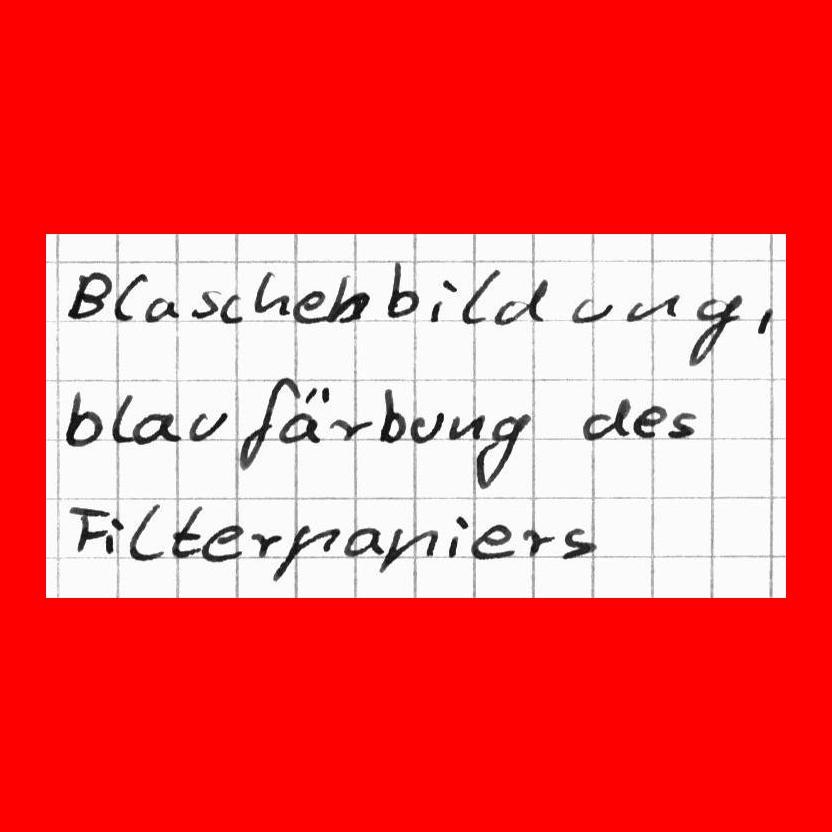 Blaschenbildung,
blaufärbung des
Filterpapiers